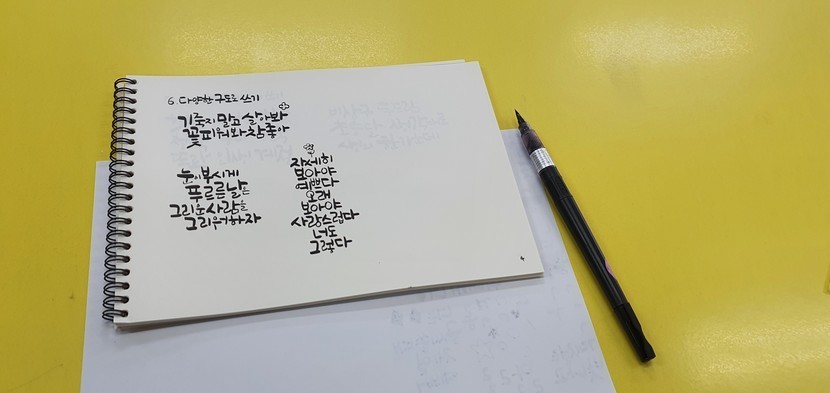 6. 다양한 구도로 쓰기
기죽지 말고 살아봐
꽃 피워봐 참 좋아
눈이 부시게
푸르른 날은
그리운 사람을
그리워하자
자세히
보아야
예쁘다
오래
보아야
사랑스럽다
너도
그렇다
4